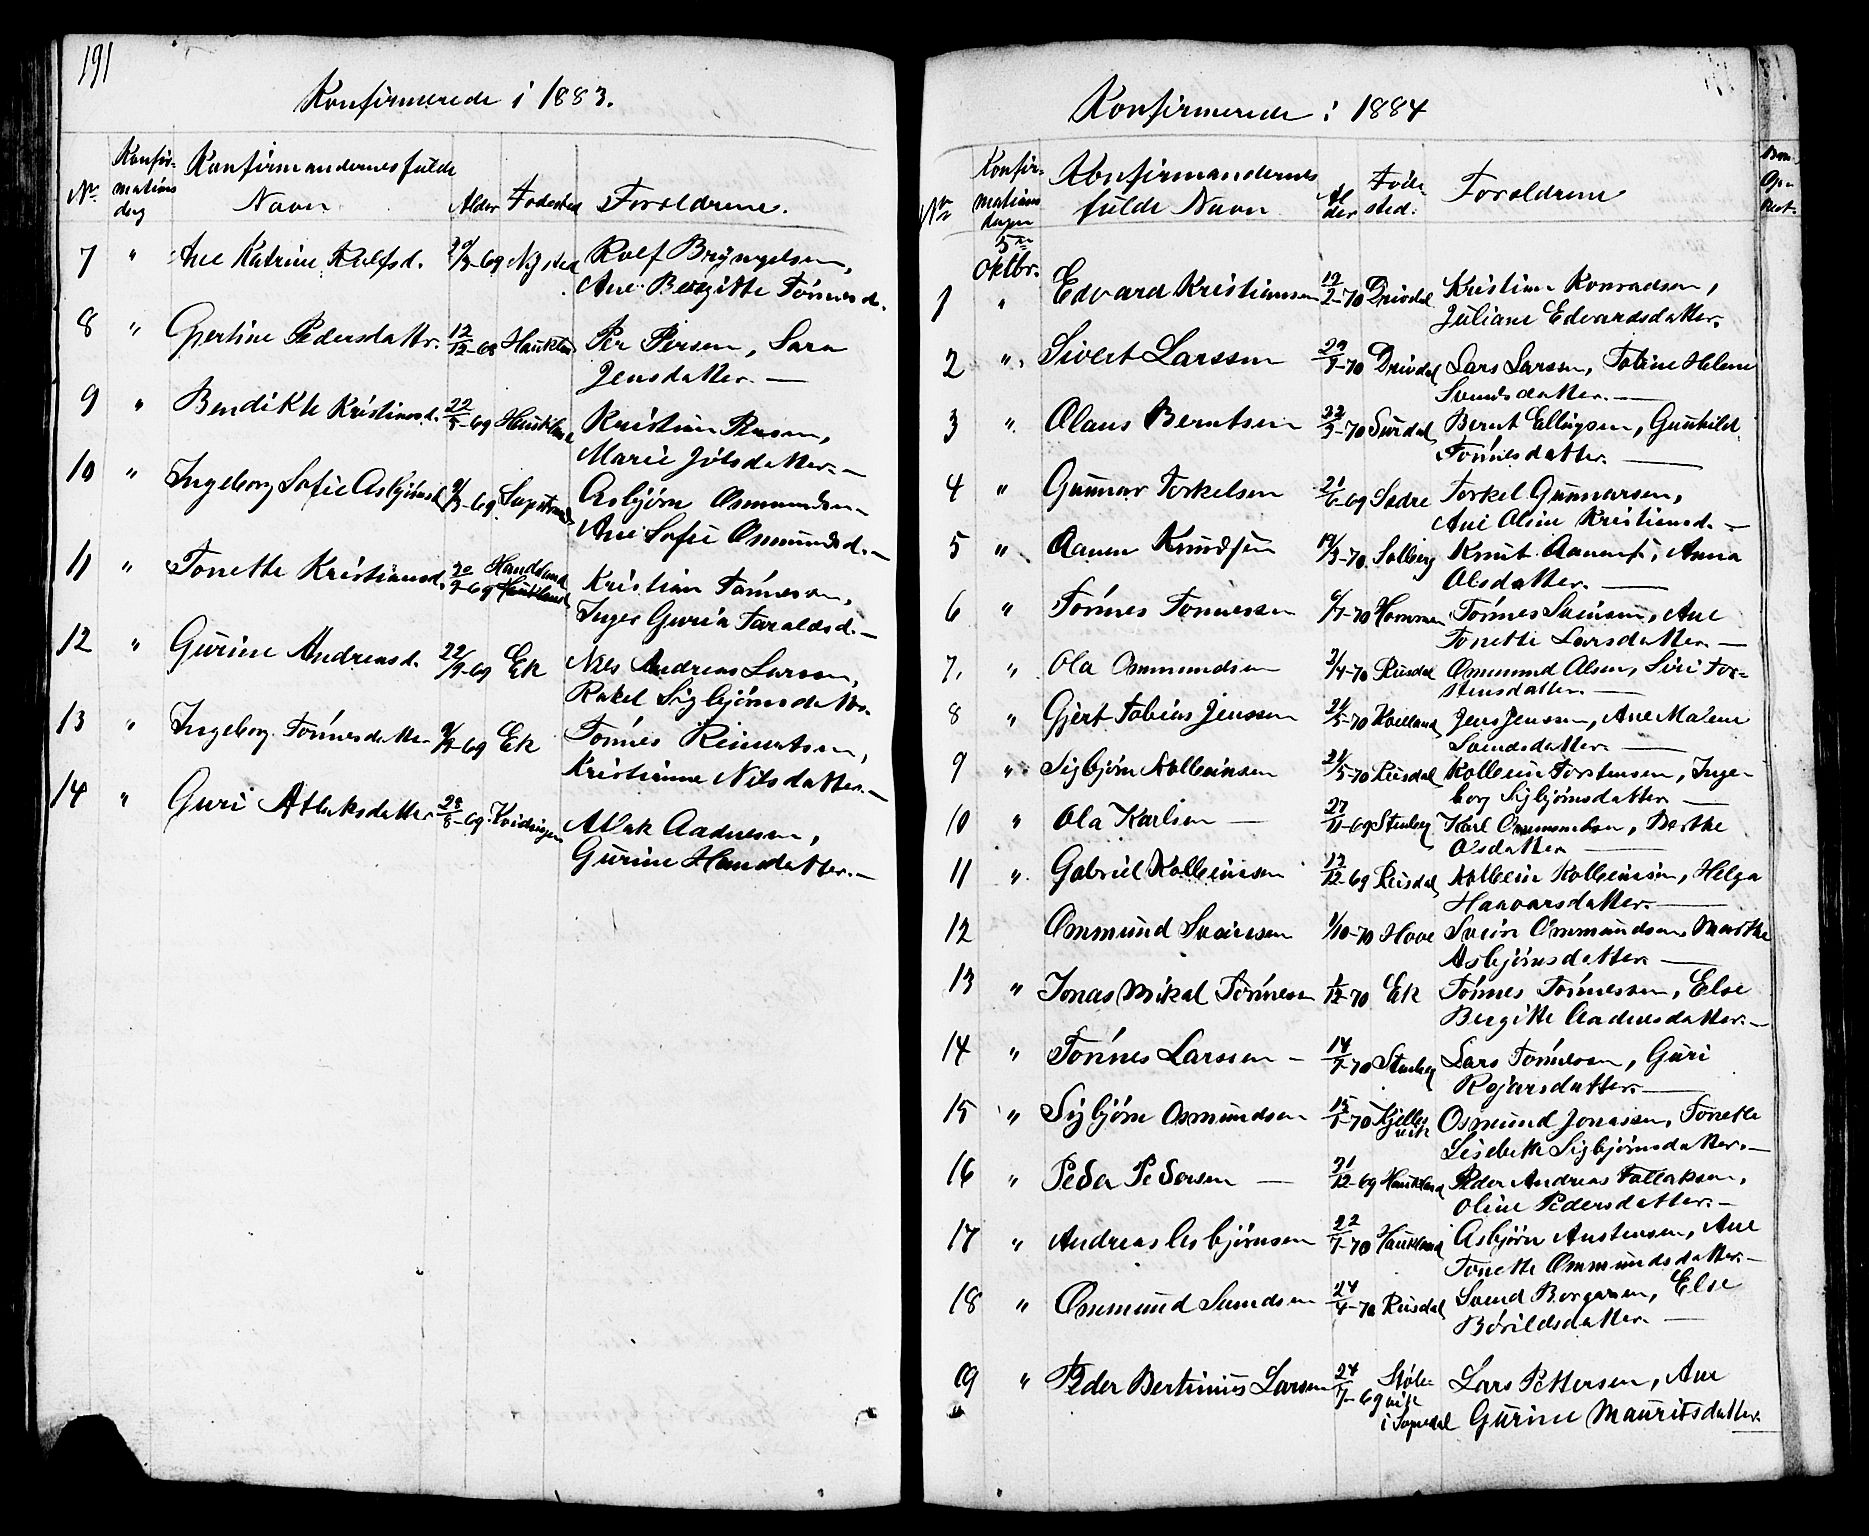 191
Konfirmerede i 1883.
No Konfir-mations dag Konfirmandernes fulde Navn Alder Fodested Foroldrene.
7 " Ane Katrine Rolfsd. -69 Nysted Rolf Bryngelsen,
Ane Bergitte Tönnesd.
8 " Gjertine Pedersdattr. 12/12-68 Haukland Per Persen, Sara
Jensdatter. —
9 " Bendikte Kristiansd. 22/8-69 Haukland Kristian Persen,
Marie Jólsdatter. —
10 " Ingeborg Sofie Asbjörnsd. -69 Asbjörn Osmundsen
Ane Sofie Osmundsd. —
11 " Tonette Kristiansd. 20/2-69 Handeland Haukland Kristian Tönnesen,
Inger Guria Taraldsd. —
12 " Gurine Andreasd. 22/9-69 Ek Nils Andreas Larsen,
Rakel Sigbjörnsdatter.
13 " Ingeborg Tönnesdatter -69 Ek Tönnes Reinertsen,
Kristianne Nilsdatter. —
14 " Guri Atlaksdatter 23/8-69 Kvidingen Atlak Aadnesen,
Gurine Hansdatter. —
Konfirmerede i 1884
No Konfir-mations dagen Konfirmandernes fulde Navn Al der Föde-sted. Foroldrene
5te Oktbr.
1 " Edvard Kristiansen 12/2-70 Drivdal Kristian Konradsen,
Juliane Edvardsdatter.
2 " Sivert Larssen 29/7-70 Drivdal Lars Larsen, Tobine Helene
Svendsdatter. —
3 " Olaus Berntsen 22/3-70 Surdal Bernt Ellingsen, Gunhild
Tönnesdatter. —
4 " Gunnar Torkelsen 21/6-69 Sadre Torkel Gunnarsen,
Ane Olene Kristiansd. —
5 " Aanen Knudsen 14/3-70 Solberg Knut Aanens, Anna
Olsdatter. —
6 " Tönnes Tönnessen 6/7-70 Hommen Tönnes Sveinsen, Ane
Tonette Larsdatter. —
7. " Ola Ommundsen 3/4-70 Reisdal Ommund Olsen, Siri Tor-
stensdatter. —
8 " Gjert Tobias Jenssen 21/5-70 Hoieland Jens Jenssen, Ane Malene
Svendsdatter. —
9 " Sigbjörn Kolbeinsen 21/5-70 Reisdal Kolbein Torstensen, Inge-
borg Sigbjörnsdatter. —
10 " Ola Karlsen — 27/11-69 Stenberg Karl Ommundsen, Berthe
Olsdatter —
11 " Gabriel Kolbeinsen 12/12-69 Reisdal Kolbein Kolbeinsen, Helga
Haavarsdatter. —
12 Ommund Sveinsen 1/10-70 Hove Svein Ommundsen, Marthe
Asbjörnsdatter. —
13 " Jonas Mikal Tönnesen 1/12-70 Ek Tönnes Tönnessen, Else
Bergitte Aadnesdatter. —
14 " Tönnes Larssen — 14/7-70 Stenberg Lars Tönnessen, Guri
Rojarsdatter. —
15 " Sigbjörn Osmundsen 15/1-70 Kjellesvik Osmund Jonassen, Tonette
Lisebeth Sigbjörnsdatter. —
16 " Peder Pedersen — 31/12-69 Haukland Peder Andreas Tallaksen,
Oline Pedersdatter. —
17 " Andreas Asbjörnsen 22/7-70 Haukland Asbjörn Austensen, Ane
Tonette Ommundsdatter. —
18 " Ommund Svendsen 24/4-70 Reisdal Svend Borgarsen, Else
Bórildsdatter. —
19 " Peder Bertinius Larsen 24/7-69 Stöle-vik i Sogndal Lars Pettersen, Ane
Gurine Mauritsdatter.